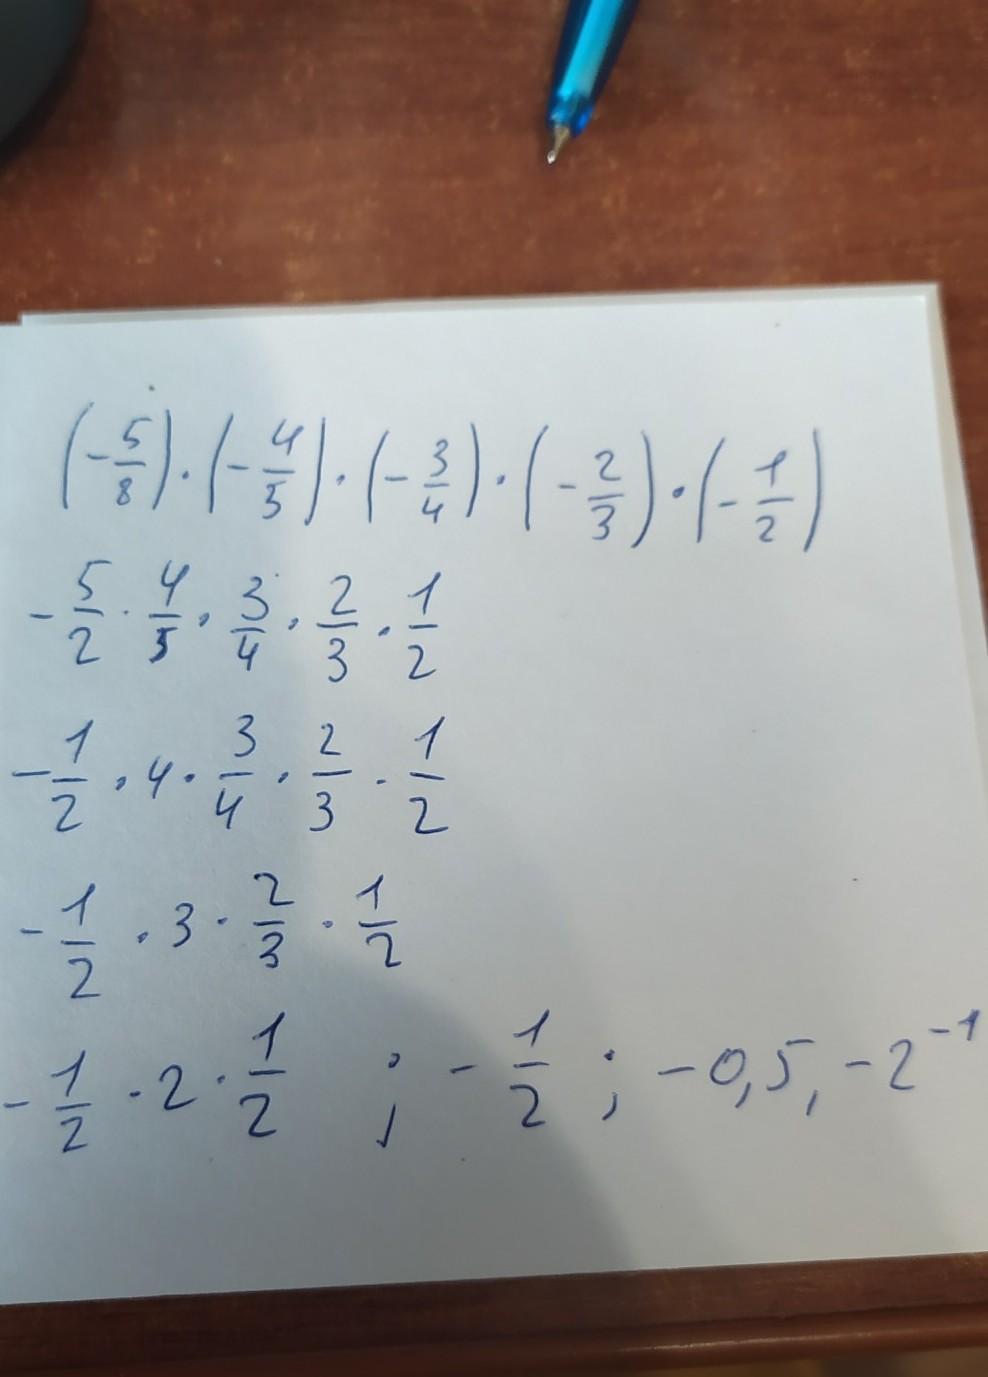 (-5/8)·(-4/5)·(-3/4)·(-2/3)·(-1/2)
-5/2·4/5·3/4·2/3·1/2
-1/2·4·3/4·2/3·1/2
-1/2·3·2/3·1/2
-1/2·2·1/2 ; -1/2 ; -0,5, -2⁻¹